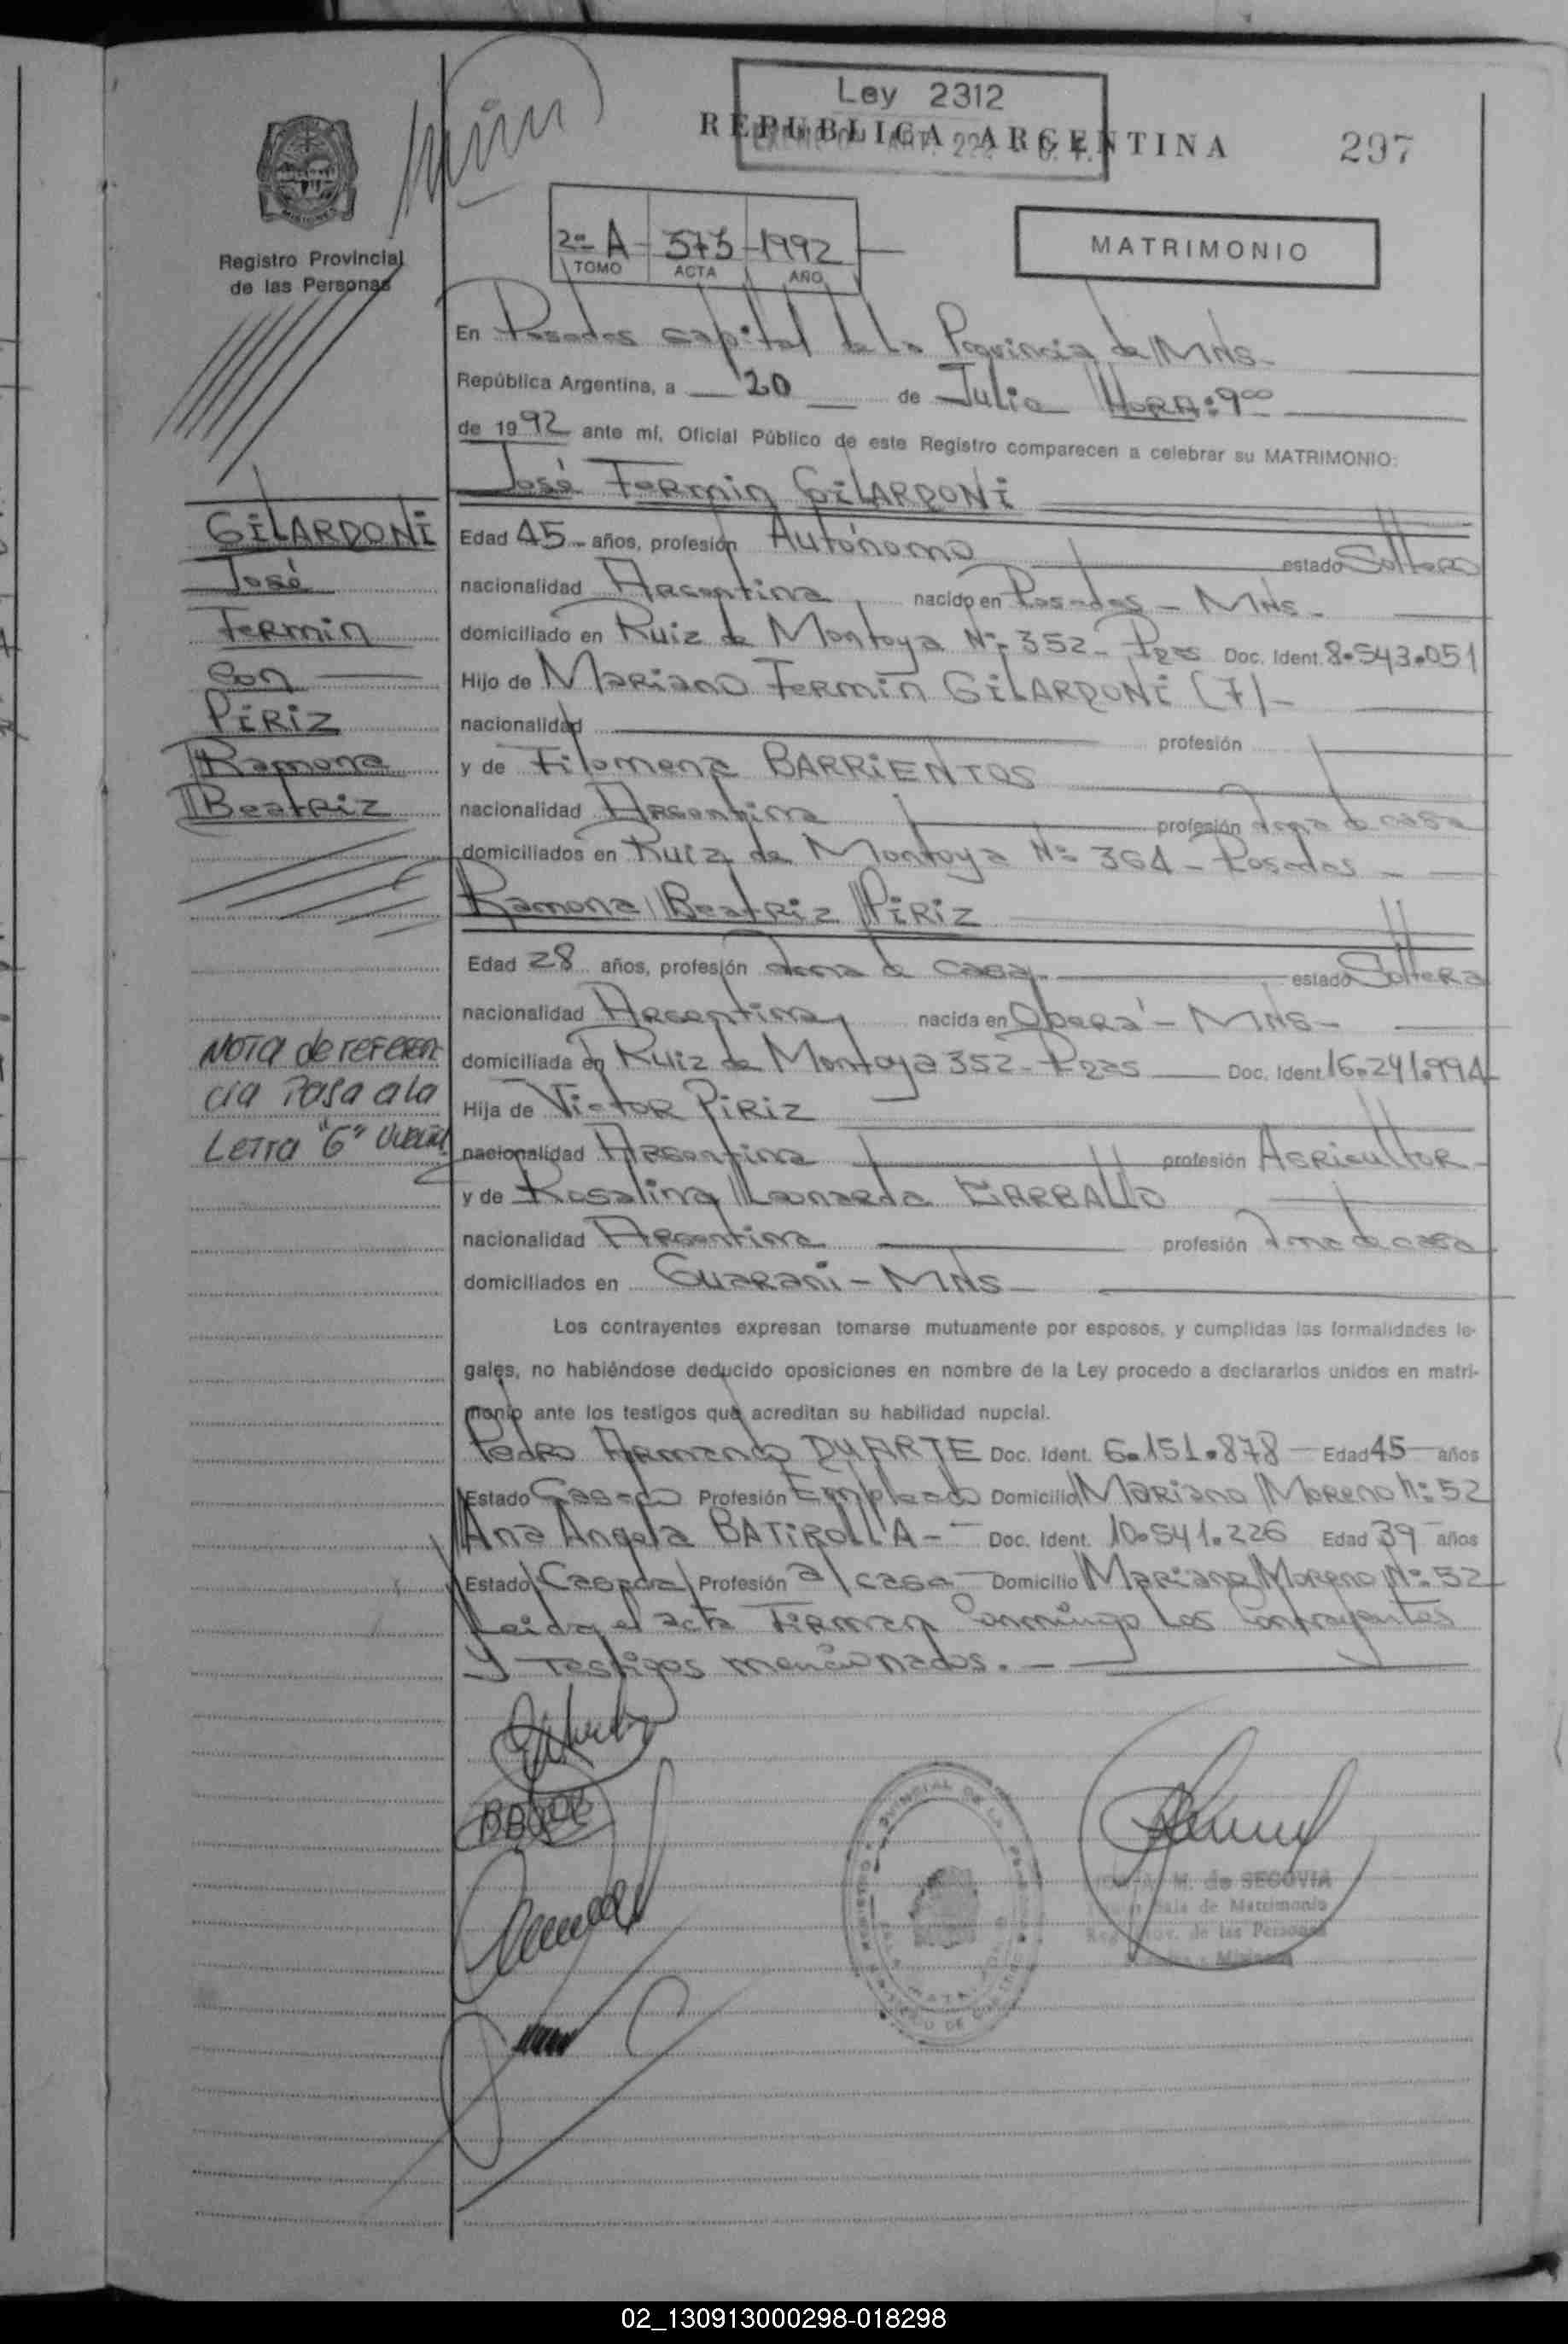 Ley 2312
REPUBLICA ARGENTINA
297
MISIONES
Registro Provincial
de las Personas
2º A - 573 - 1992
TOMO ACTA AÑO
MATRIMONIO
En Posadas capital de la Provincia de MNS-
República Argentina, a 20 de Julio HORA: 9ºº
de 1992 ante mí, Oficial Público de este Registro comparecen a celebrar su MATRIMONIO:
José Fermin GILARDONI
Edad 45 años, profesión Autónomo estado Soltero
nacionalidad Argentina nacido en Posadas - MNS-
domiciliado en Ruiz de Montoya Nº 352- Pdas Doc. Ident. 8.543.051
Hijo de Mariano Fermin GILARDONI (7)-
nacionalidad profesión
y de Filomena BARRIENTOS
nacionalidad Argentina profesión Ama de casa
domiciliados en Ruiz de Montoya Nº 364 - Posadas -
Ramona Beatriz PIRIZ
Edad 28 años, profesión Ama de casa estado Soltera
nacionalidad Argentina nacida en Oberá - MNS-
domiciliada en Ruiz de Montoya 352- Pdas Doc. Ident. 16.241.994
Hija de Victor PIRIZ
nacionalidad Argentina profesión Agricultor
y de Rosalina Leonarda CARBALLO
nacionalidad Argentina profesión Ama de casa
domiciliados en Guarani - MNS
Los contrayentes expresan tomarse mutuamente por esposos, y cumplidas las formalidades le-
gales, no habiéndose deducido oposiciones en nombre de la Ley procedo a declararlos unidos en matri-
monio ante los testigos que acreditan su habilidad nupcial.
Pedro Armando DUARTE Doc. Ident. 6.151.878 Edad 45 años
Estado Casado Profesión Empleado Domicilio Mariano Moreno Nº 52
Ana Angela BATIROLLA - Doc. Ident. 10.541.226 Edad 39 años
Estado Casada Profesión a/casa Domicilio Mariano Moreno Nº 52
Leida el acta Firman Conmigo Los Contrayentes
y Testigos mencionados. -
GILARDONI
José
Fermin
con
PIRIZ
Ramona
Beatriz
NOTA de referen
cia Pasa a la
Letra "G"
M. de SEGOVIA
Sala de Matrimonio
de las Personas
Misiones
02_130913000298-018298